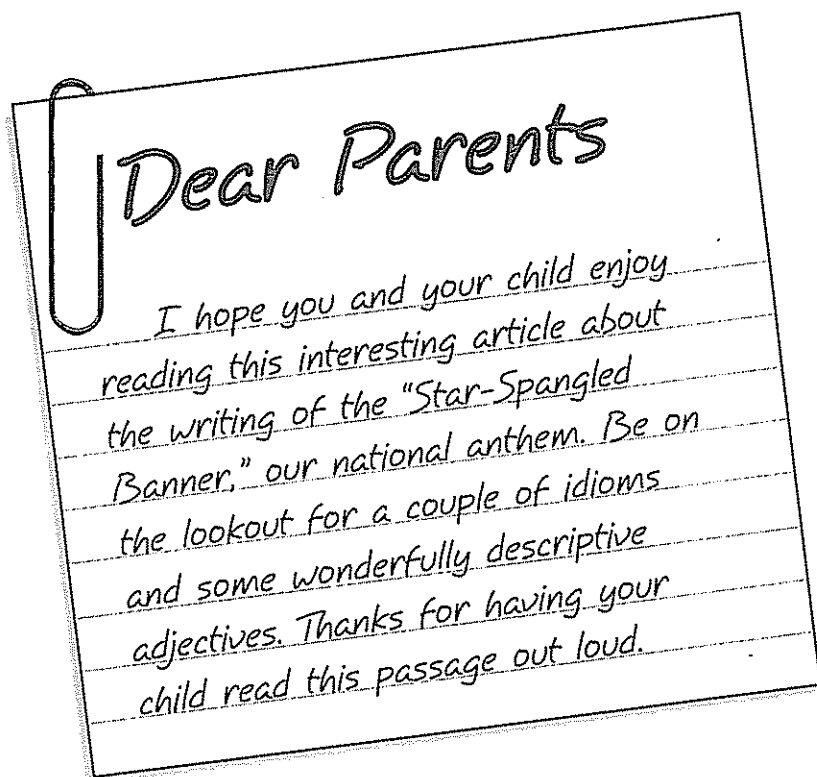 Dear Parents
I hope you and your child enjoy
reading this interesting article about
the writing of the "Star-Spangled
Banner," our national anthem. Be on
the lookout for a couple of idioms
and some wonderfully descriptive
adjectives. Thanks for having your
child read this passage out loud.